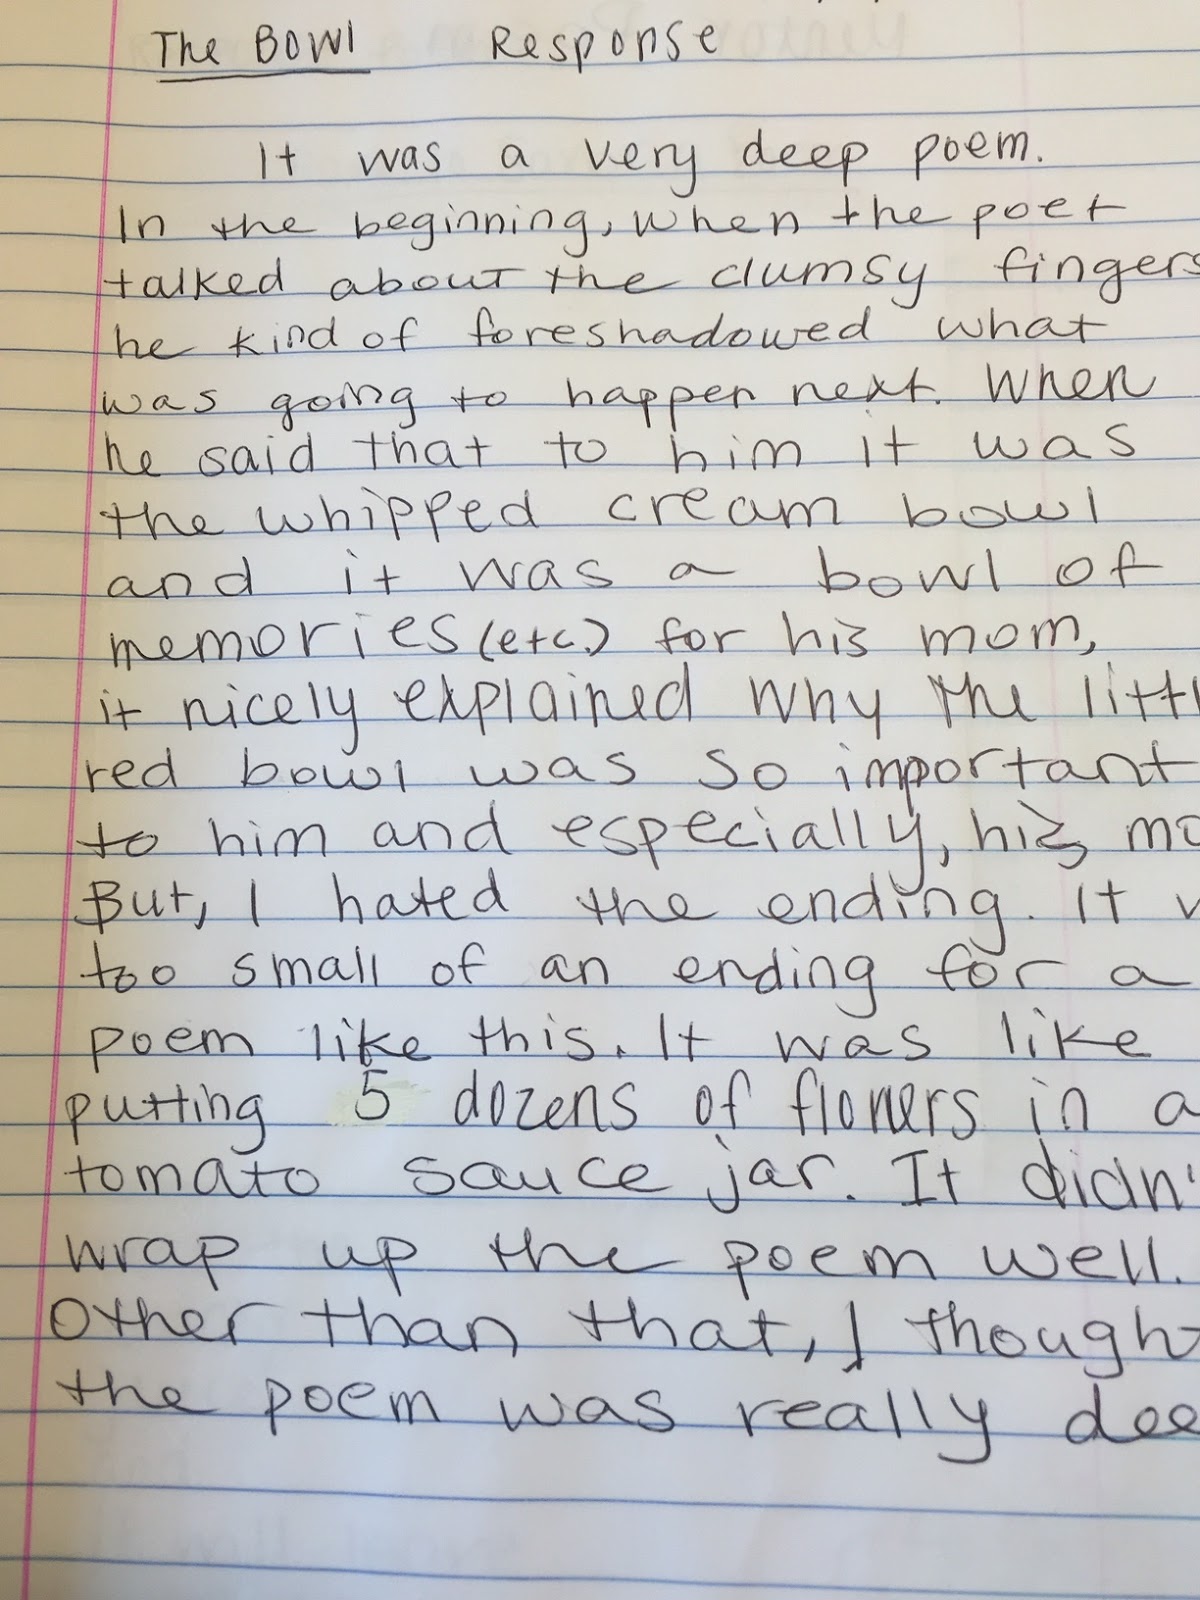 The Bowl Response
It was a very deep poem.
In the beginning, when the poet
talked about the clumsy fingers
he kind of foreshadowed what
was going to happen next. When
he said that to him it was
the whipped cream bowl
and it was a bowl of
memories (etc.) for his mom,
it nicely explained why the littl
red bowl was so important
to him and especially, his mo
But, I hated the ending. It w
too small of an ending for a
poem like this. It was like
putting 5 dozens of flowers in a
tomato sauce jar. It didn'
wrap up the poem well.
Other than that, I though
the poem was really dee